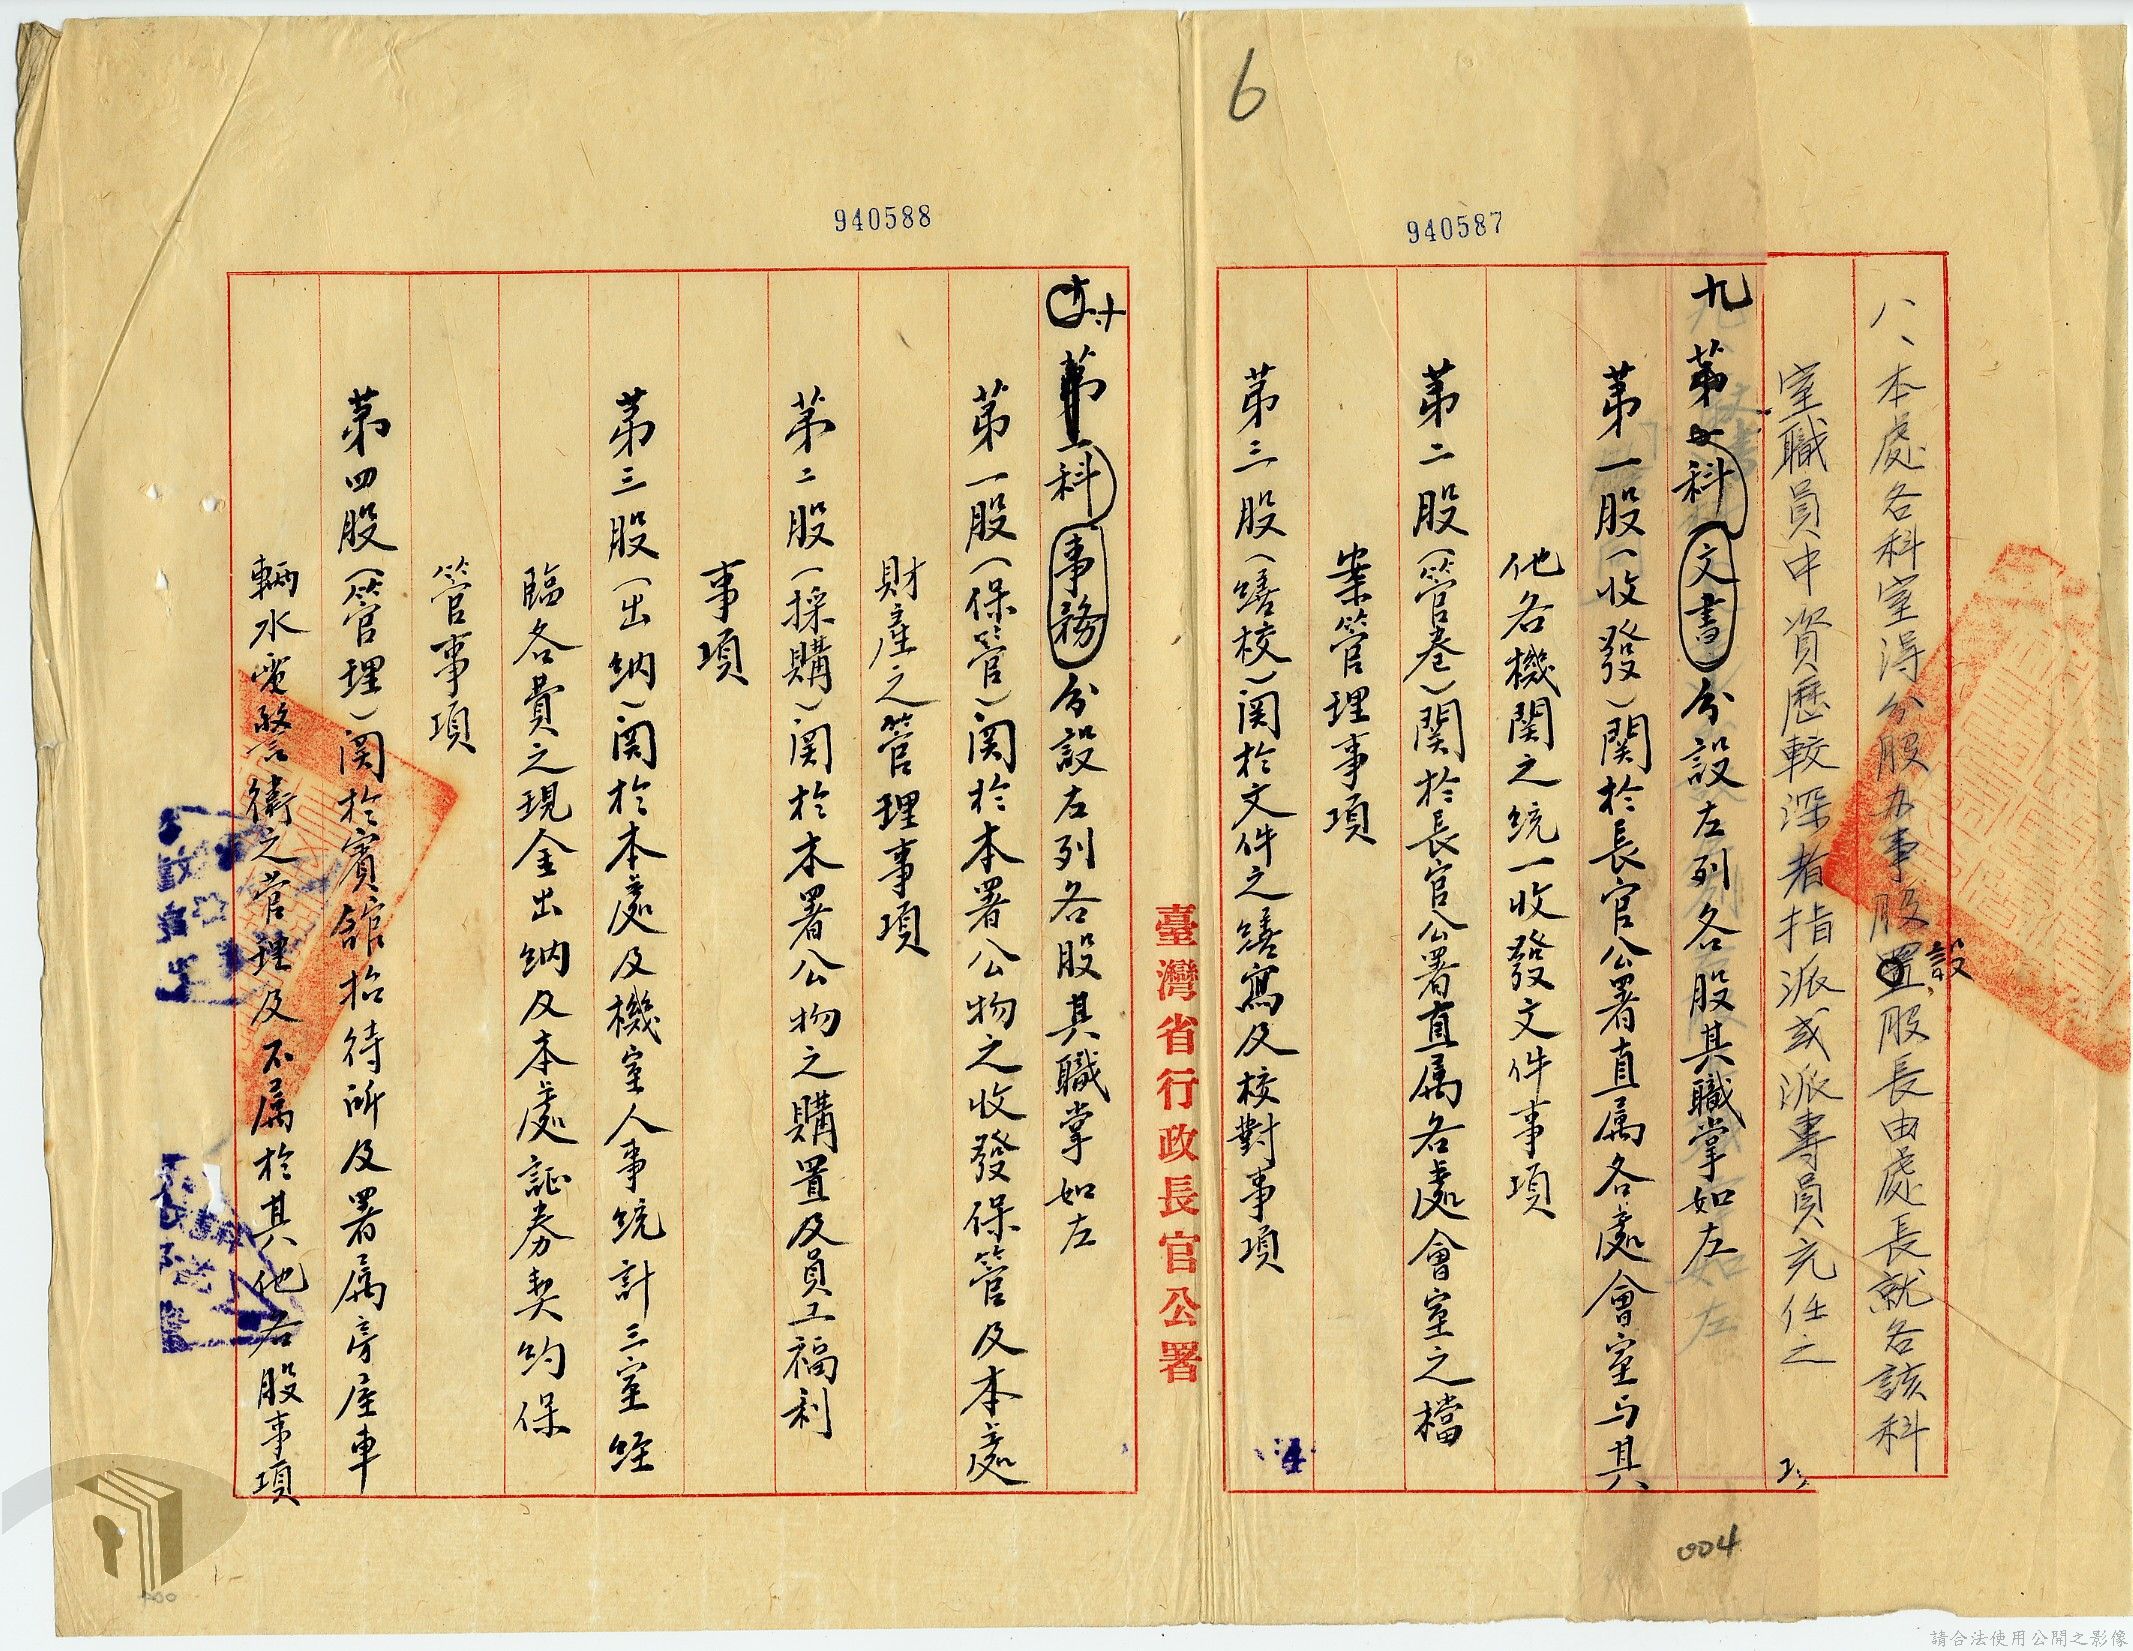 6
940587
八、本處各科室得分股办事股設股長由處長就各該科
室職員中資歷較深者指派或派專員充任之
九 第 科(文書)分設左列各股其職掌如左
第一股(收發)関於長官公署直属各處會室与其
他各機関之統一收發文件事項
第二股(管卷)関於長官公署直属各處會室之檔
案管理事項
第三股(繕校)関於文件之繕寫及校對事項
004
臺灣省行政長官公署
940588
十 第 科(事務)分設左列各股其職掌如左
第一股(保管)関於本署公物之收發保管及本處
財產之管理事項
第二股(採購)関於本署公物之購置及員工福利
事項
第三股(出納)関於本處及機室人事統計三室經
臨各費之現金出納及本處証券契約保
管事項
第四股(管理)関於賓舘招待所及署属房屋車
輛水電警衛之管理及不属於其他各股事項
請合法使用公開之影像